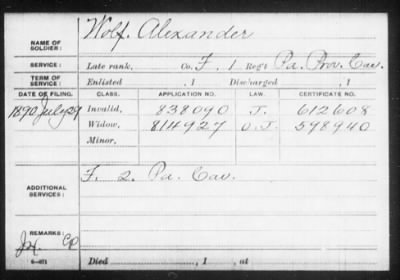 NAME OF SOLDIER: Wolf, Alexander
SERVICE: Late rank, Co. F, 1 Regt Pa. Prov. Cav.
TERM OF SERVICE: Enlisted , 1 Discharged , 1
DATE OF FILING. CLASS. APPLICATION NO. LAW. CERTIFICATE NO.
1890 July 29 Invalid, 838090 J. 612608
Widow, 814927 O.J. 598940
Minor,
ADDITIONAL SERVICES: F. 2. Pa. Cav.
REMARKS:
Died , 1 , at